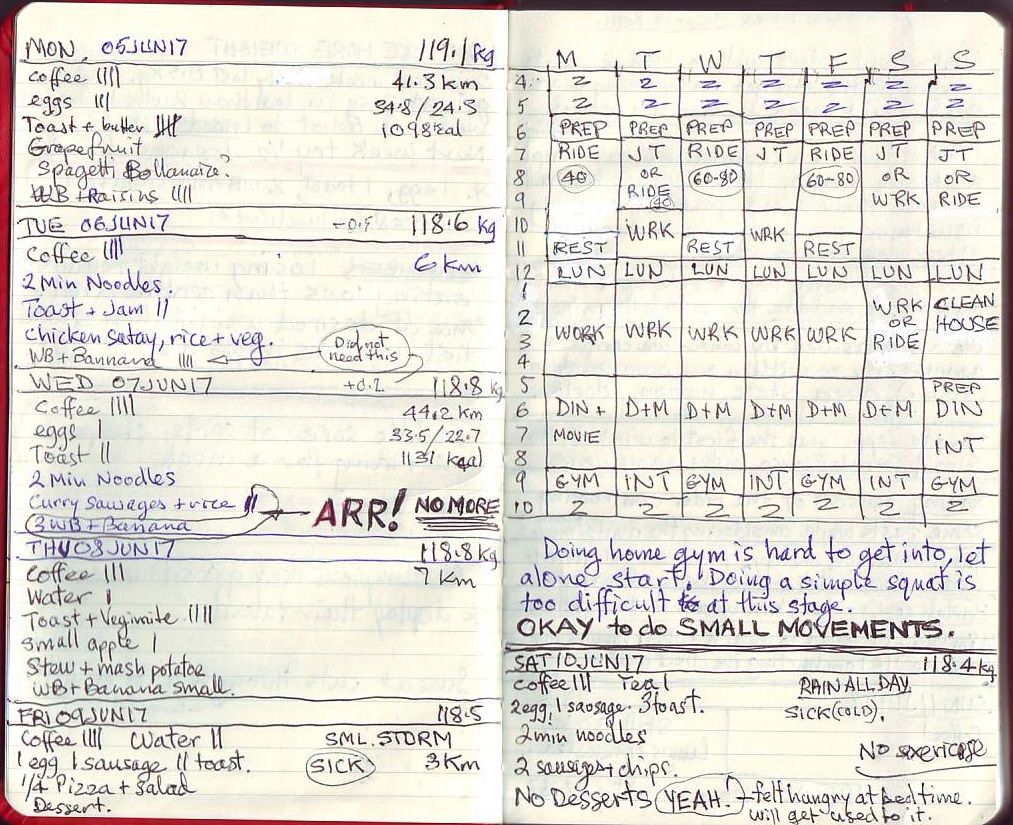 MON 05JUN17 119.1 kg
coffee |||| 41.3 km
eggs ||| 34.8/24.3
Toast + butter 1098kal
Grapefruit
Spagetti Bollanaize?
WB + Raisins ||||
TUE 06JUN17 -0.5 118.6 kg
Coffee |||| 6 km
2 Min Noodles
Toast + Jam ||
Chicken Satay, rice + veg.
WB + Bannana |||| Did not need this
WED 07JUN17 +0.2 118.8 kg
Coffee |||| 44.2 km
eggs | 33.5/22.7
Toast || 1131 kcal
2 Min Noodles
Curry Sausages + rice ||
3 WB + Banana ARR! NO MORE
THU 08JUN17 118.8 kg
Coffee ||| 7 km
Water |
Toast + Vegimite ||||
Small apple |
Stew + mash potatoe
WB + Banana small.
FRI 09JUN17 118.5
Coffee |||| Water || SML. STORM
1 egg 1 sausage || toast. SICK 3 Km
1/4 Pizza + Salad
Dessert.
M T W T F S S
4 Z Z Z Z Z Z Z
5 Z Z Z Z Z Z Z
6 PREP PREP PREP PREP PREP PREP PREP
7 RIDE JT RIDE JT RIDE JT JT
8 40 OR 60-80 60-80 OR OR
9 RIDE 40 WRK RIDE
10 WRK WRK
11 REST REST REST
12 LUN LUN LUN LUN LUN LUN LUN
1 WRK CLEAN
2 OR HOUSE
3 WORK WRK WRK WRK WRK RIDE
4
5 PREP
6 DIN + D+M D+M D+M D+M D+M DIN
7 MOVIE INT
8
9 GYM INT GYM INT GYM INT GYM
10 Z Z Z Z Z Z Z
Doing home gym is hard to get into, let
alone start! Doing a simple squat is
too difficult at this stage.
OKAY to do SMALL MOVEMENTS.
SAT 10JUN17 118.4 kg
Coffee ||| Tea 1 RAIN ALL DAY
2 egg, 1 sausage. 3 toast. SICK (COLD).
2 min noodles
2 sausiges + chips. No exericse
No Desserts YEAH! - felt hangry at bed time.
will get used to it.